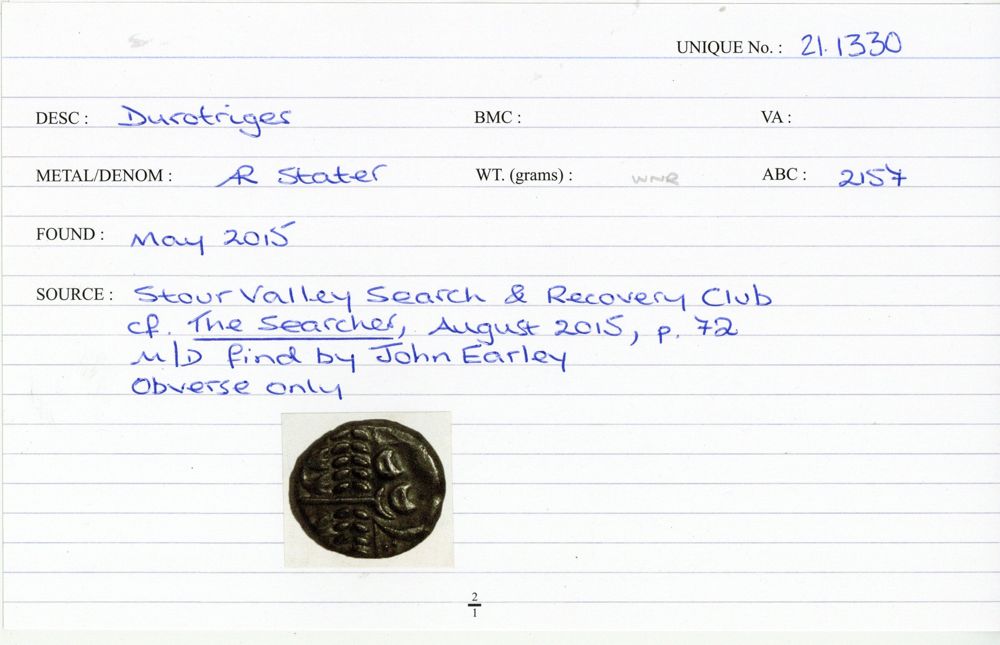 UNIQUE No. : 21.1330
DESC : Durotriges BMC : VA :
METAL/DENOM : AR Stater WT. (grams) : WNR ABC : 2157
FOUND : May 2015
SOURCE : Stour Valley Search & Recovery Club
cf. The Searcher, August 2015, p. 72
M/D find by John Earley
Obverse only
2
1